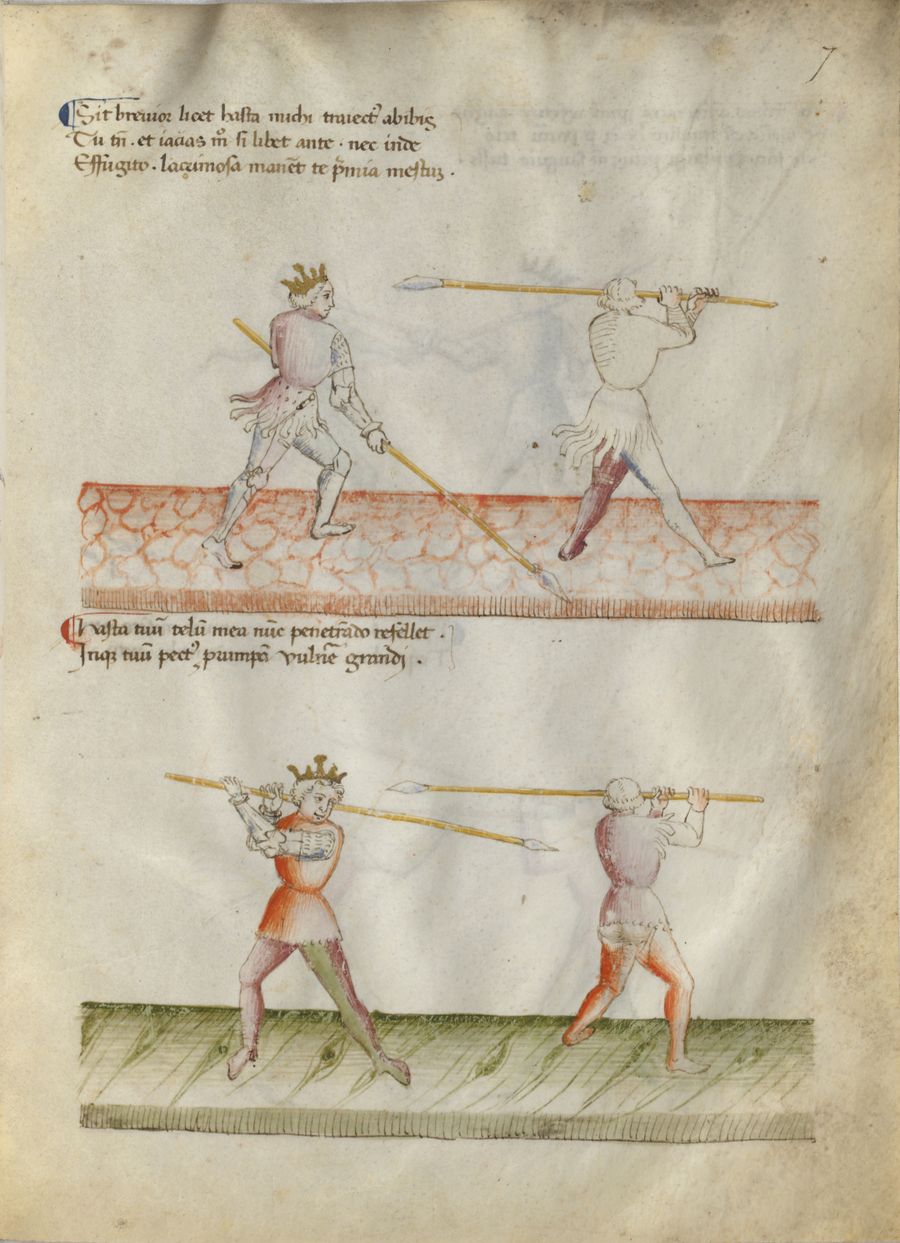 7
Sit breuior licet hasta michi traiectꝰ abibis
Tu tn̄ . et iacias m̊ si libet ante . nec inde
Effugito . lacrimosa manēt te p̄mia mestuꝫ .
Hasta tuū telū mea nūc penetrādo refellet .
Inqꝫ tuū pectꝰ prumpā vulnē grandi .